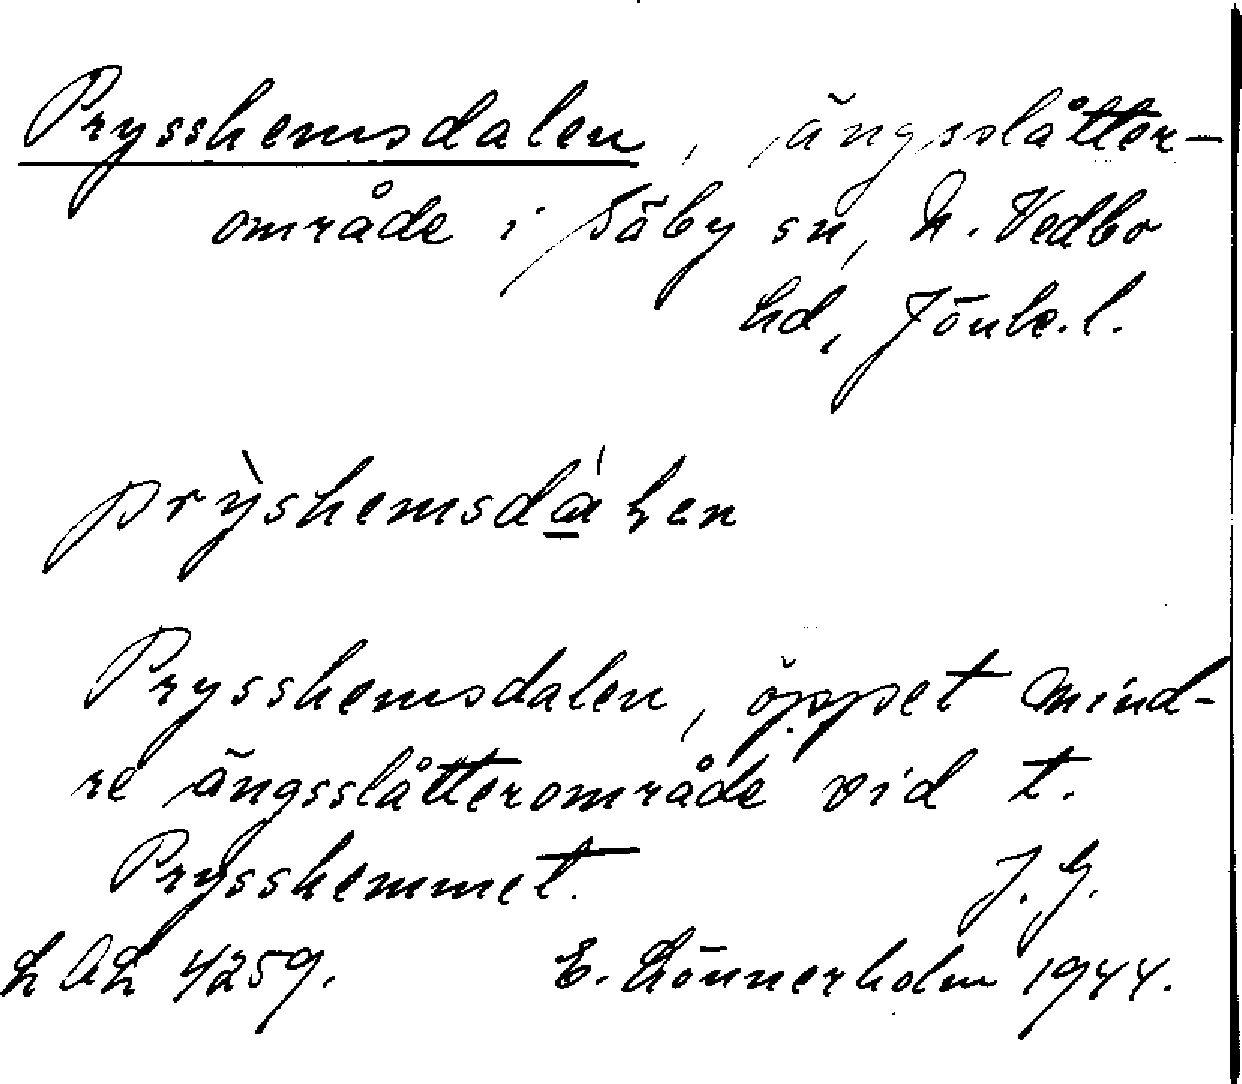 Prysshemsdalen, ängsslåtter-
område i Säby sn, N. Vedbo
hd, Jönk. l.
prỳshemsdáɫen
Prysshemsdalen, öppet mind-
re ängsslåtterområde vid t.
Prysshemmet. J. G.
LAL 4259. E. Lönnerholm 1944.